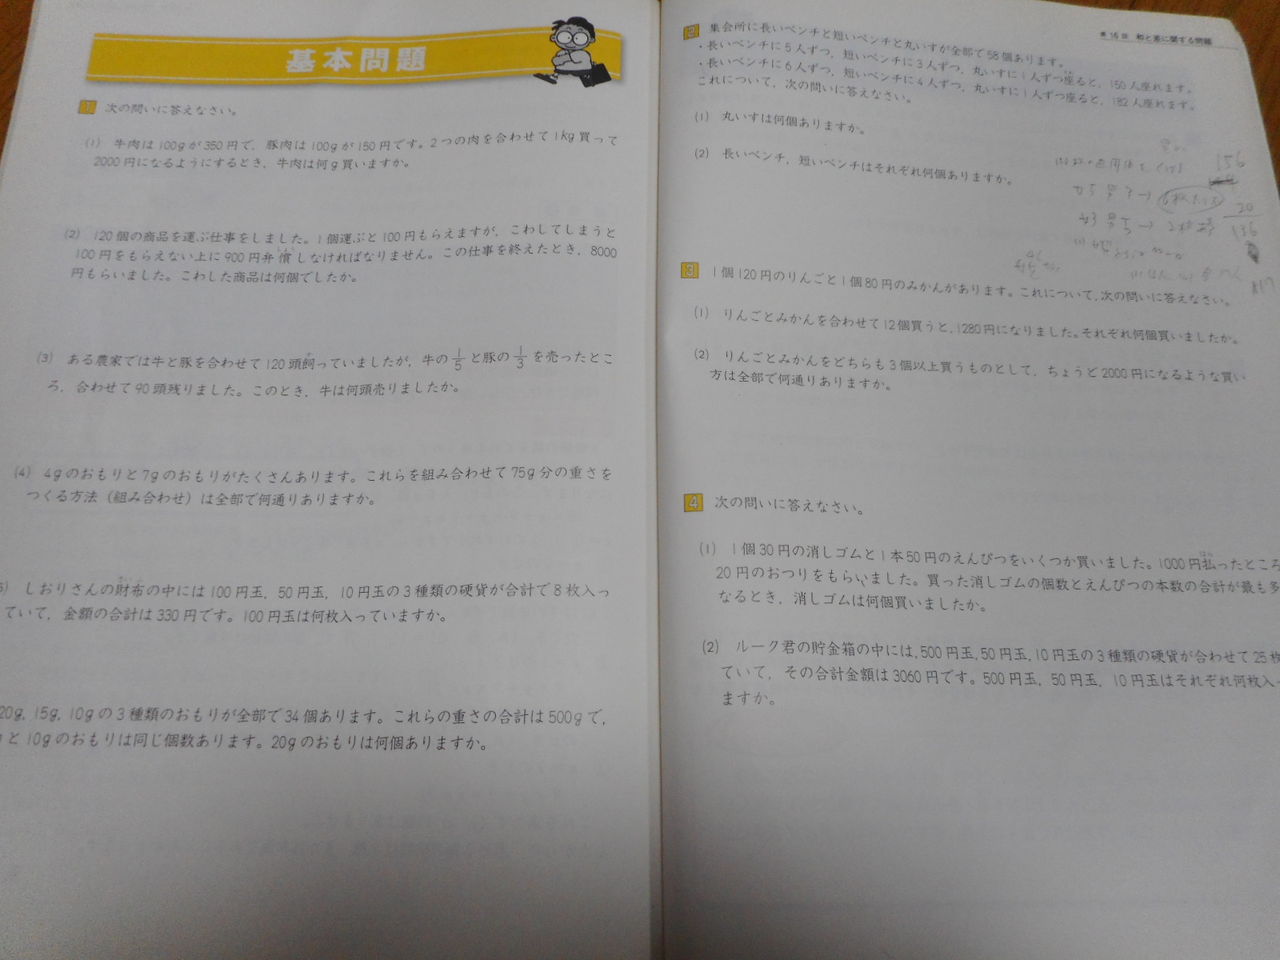 基本問題
1 次の問いに答えなさい。
(1) 牛肉は100gが350円で，豚肉は100gが150円です。2つの肉を合わせて1kg買って
2000円になるようにするとき，牛肉は何g買いますか。
(2) 120個の商品を運ぶ仕事をしました。1個運ぶと100円もらえますが，こわしてしまうと
100円をもらえない上に900円弁償しなければなりません。この仕事を終えたとき，8000
円もらいました。こわした商品は何個でしたか。
(3) ある農家では牛と豚を合わせて120頭飼っていましたが，牛の1/5と豚の1/3を売ったとこ
ろ，合わせて90頭残りました。このとき，牛は何頭売りましたか。
(4) 4gのおもりと7gのおもりがたくさんあります。これらを組み合わせて75g分の重さを
つくる方法（組み合わせ）は全部で何通りありますか。
しおりさんの財布の中には100円玉，50円玉，10円玉の3種類の硬貨が合計で8枚入っ
ていて，金額の合計は330円です。100円玉は何枚入っていますか。
20g，15g，10gの3種類のおもりが全部で34個あります。これらの重さの合計は500gで，
と10gのおもりは同じ個数あります。20gのおもりは何個ありますか。
第16回 和と差に関する問題
2 集会所に長いベンチと短いベンチと丸いすが全部で58個あります。
・長いベンチに5人ずつ，短いベンチに3人ずつ，丸いすに1人ずつ座ると，150人座れます。
・長いベンチに6人ずつ，短いベンチに4人ずつ，丸いすに1人ずつ座ると，182人座れます。
これについて，次の問いに答えなさい。
(1) 丸いすは何個ありますか。
(2) 長いベンチ，短いベンチはそれぞれ何個ありますか。
156
20
136
3 1個120円のりんごと1個80円のみかんがあります。これについて，次の問いに答えなさい。
(1) りんごとみかんを合わせて12個買うと，1280円になりました。それぞれ何個買いましたか。
(2) りんごとみかんをどちらも3個以上買うものとして，ちょうど2000円になるような買い
方は全部で何通りありますか。
4 次の問いに答えなさい。
(1) 1個30円の消しゴムと1本50円のえんぴつをいくつか買いました。1000円払ったところ
20円のおつりをもらいました。買った消しゴムの個数とえんぴつの本数の合計が最も多
なるとき，消しゴムは何個買いましたか。
(2) ルーク君の貯金箱の中には，500円玉，50円玉，10円玉の3種類の硬貨が合わせて25枚
ていて，その合計金額は3060円です。500円玉，50円玉，10円玉はそれぞれ何枚入っ
ますか。